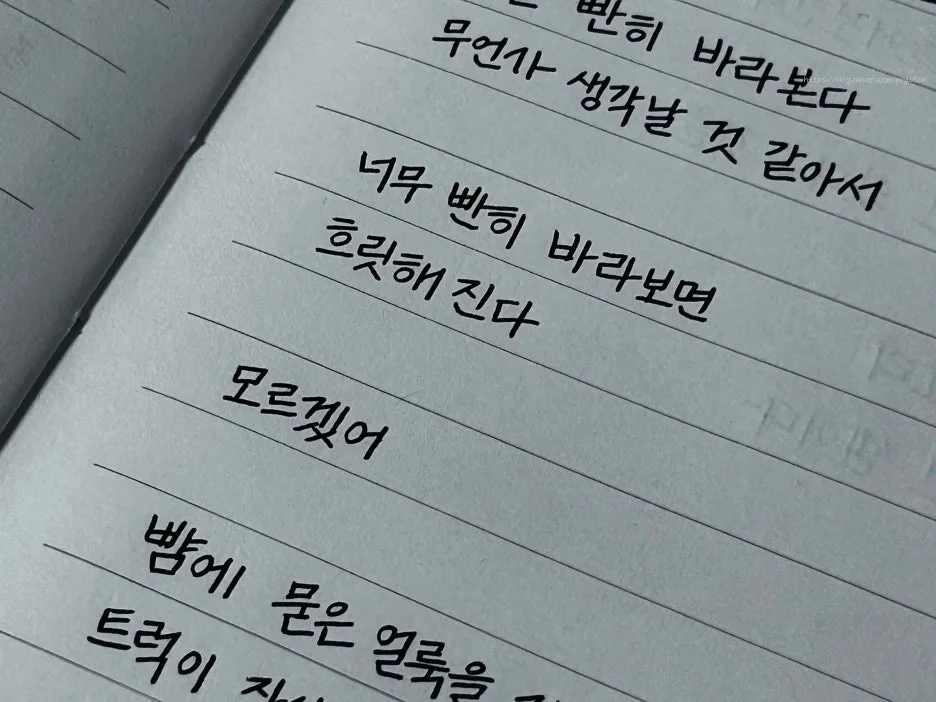 빤히 바라본다
무언가 생각날 것 같아서
너무 빤히 바라보면
흐릿해 진다
모르겠어
뺨에 묻은 얼룩을
트럭이